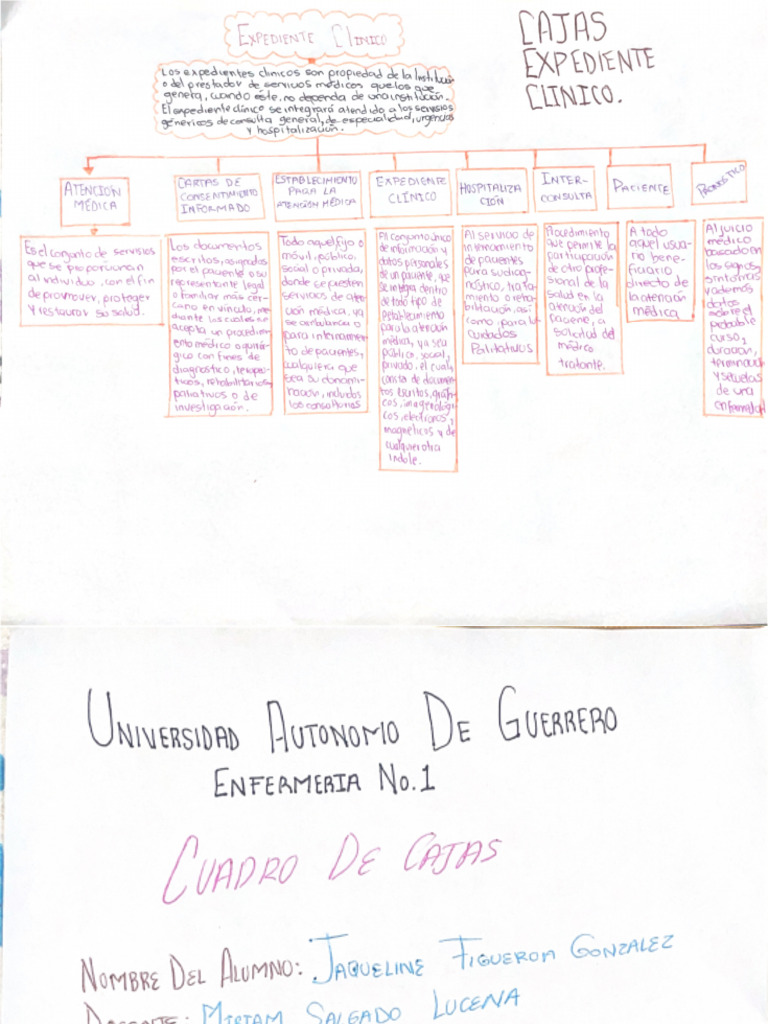 EXPEDIENTE CLINICO
CAJAS
EXPEDIENTE
CLINICO.
Los expedientes clinicos son propiedad de la Institución
o del prestador de servicios médicos que los que
genera, cuando éste, no dependa de una institución.
El expediente clínico se integrará atendido a los servicios
génericos de consulta general, de especialidad, urgencias
y hospitalización.
ATENCIÓN
MÉDICA
CARTAS DE
CONSENTIMIENTO
INFORMADO
ESTABLECIMIENTO
PARA LA
ATENCIÓN MÉDICA
EXPEDIENTE
CLÍNICO
HOSPITALIZA
CIÓN
INTER-
CONSULTA
PACIENTE
PRONOSTICO
Es el conjunto de servicios
que se proporcionan
al individuo, con el fin
de promover, proteger
y restaurar su salud.
Los documentos
escritos, asignados
por el paciente o su
representante legal
o familiar más cer-
cano en vínculo, me-
diante los cuales se
acepta un procedimi-
ento médico o quirúr-
gico con fines de
diagnostico, terapeú-
ticos, rehabilitatorios,
paliativos o de
investigación.
Todo aquel fijo o
móvil, público,
social o privado,
donde se presten
servicios de aten
ción médica, ya
sea ambulatoria o
para internamien
to de pacientes,
cualquiera que
sea su denomi-
nación, incluidos
los consultorios
Al conjunto único
de información y
datos personales
de un paciente, que
se integra dentro
de todo tipo de
establecimiento
para la atención
médica, ya sea
público, social,
privado, el cual,
consta de documen
tos escritos, gráfi-
cos, imagenológi-
cos, electronicos,
magneticos y de
cualquier otra
indole.
Al servicio de
internamiento
de pacientes
para su diag-
nóstico, trata-
miento o reha-
bilitación, así
como, para los
cuidados
Paliativos
Procedimiento
que permite la
participación
de otro profe-
sional de la
salud en la
atención del
paciente, a
solicitud del
médico
tratante.
A todo
aquel usua-
rio bene-
ficiario
directo de
la atención
médica.
Al juicio
médico
basado en
los signos,
sintomas
y demás
datos
sobre el
probable
curso,
duración,
terminación
y secuelas
de una
enfermedad
UNIVERSIDAD AUTONOMO DE GUERRERO
ENFERMERIA No.1
CUADRO DE CAJAS
NOMBRE DEL ALUMNO: JAQUELINE FIGUEROA GONZALEZ
DOCENTE: MIRIAM SALGADO LUCENA